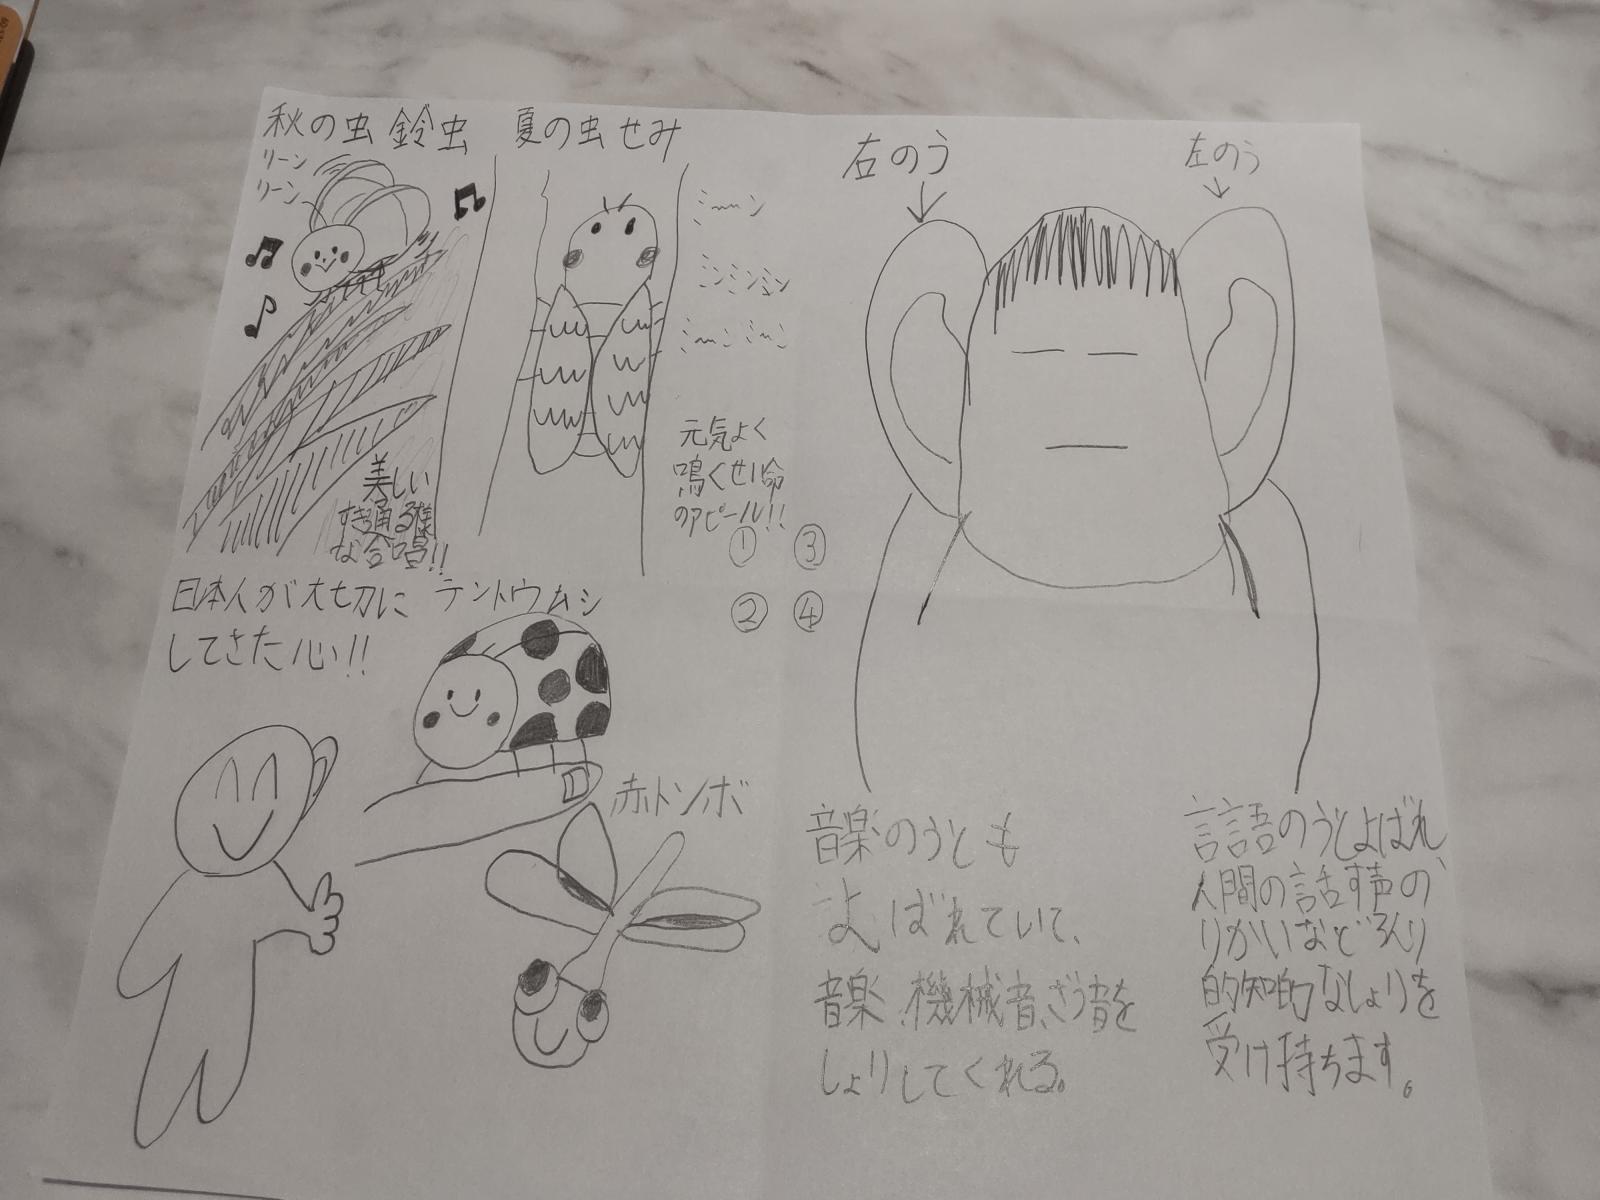 秋の虫 鈴虫
リーン
リーン
美しい
すき通る様
な合唱!!
夏の虫 せみ
ミーーン
ミンミンミン
ミーン ミーン
元気よく
鳴くせい命
のアピール!!
① ③
② ④
日本人が大切に
してきた心!!
テントウムシ
赤トンボ
右のう
左のう
音楽のうとも
よばれていて、
音楽、機械音、ざう音を
しょりしてくれる。
言語のうとよばれ、
人間の話す声の
りかいなどろんり
的知的なしょりを
受け持ちます。